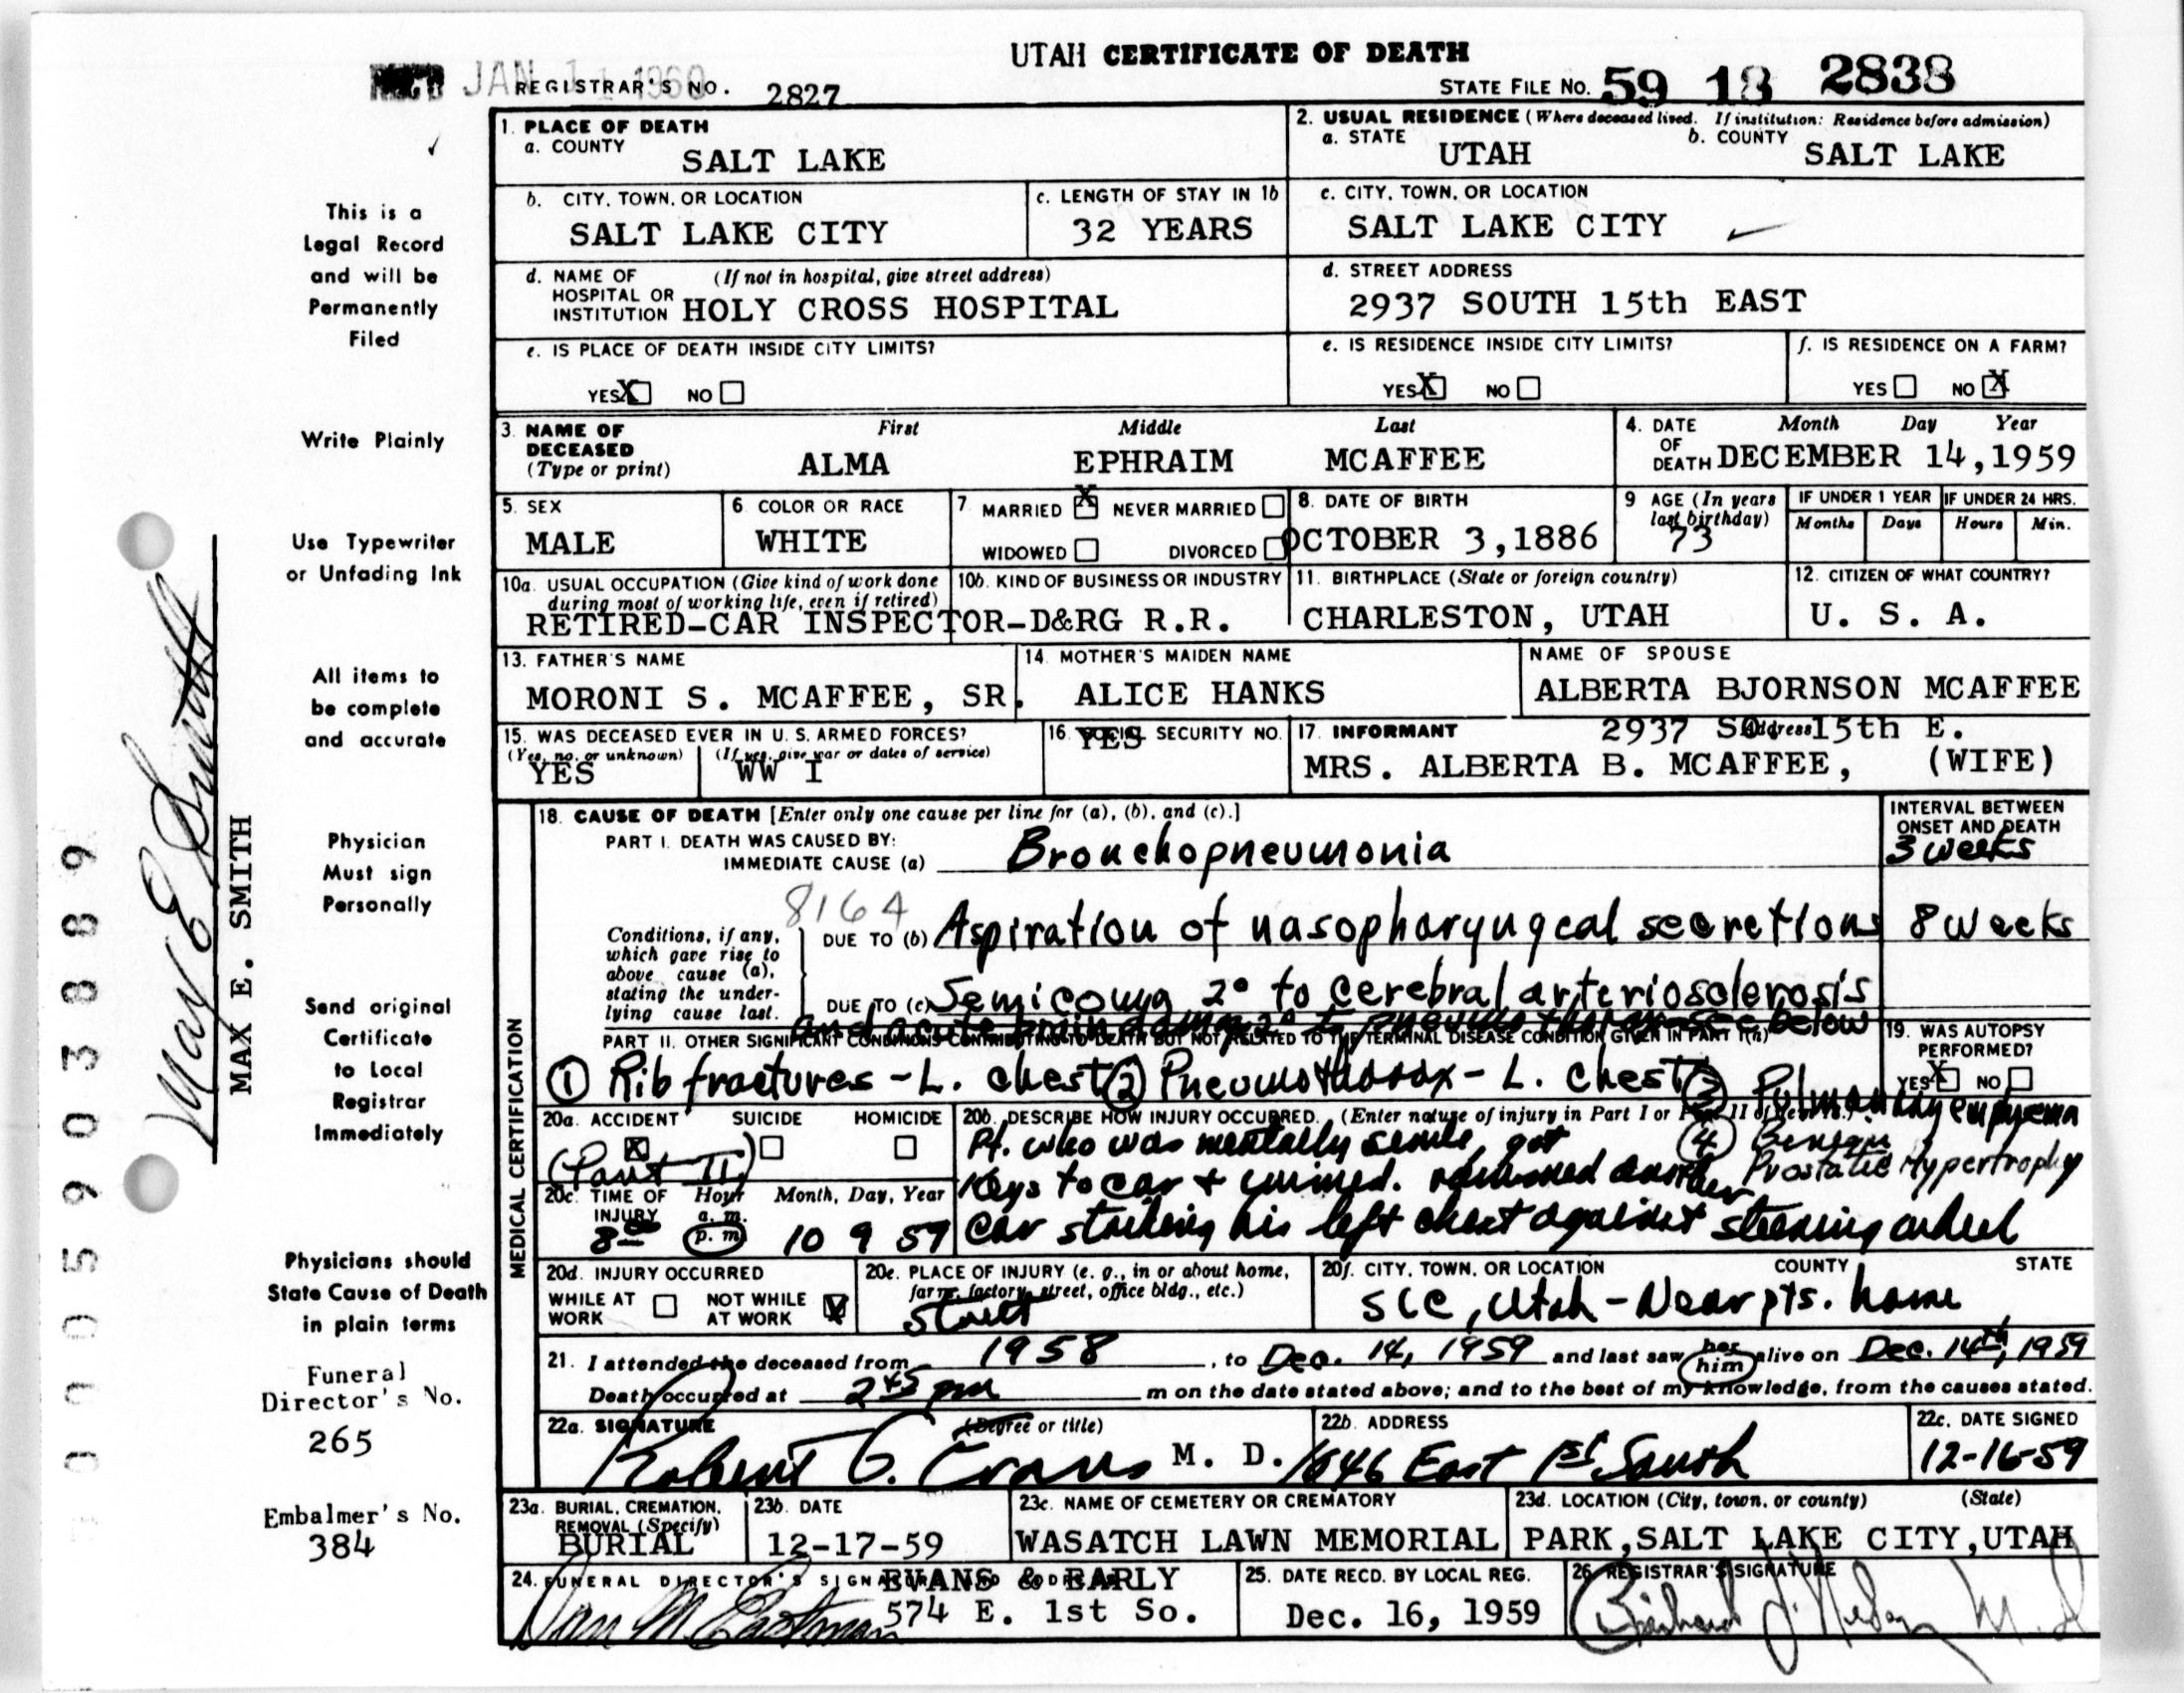 UTAH CERTIFICATE OF DEATH
REC'D JAN 11 1960
REGISTRAR'S NO. 2827
STATE FILE NO. 59 18 2838
1. PLACE OF DEATH
a. COUNTY
SALT LAKE
2. USUAL RESIDENCE (Where deceased lived. If institution: Residence before admission)
a. STATE UTAH b. COUNTY SALT LAKE
b. CITY, TOWN, OR LOCATION
SALT LAKE CITY
c. LENGTH OF STAY IN 1b
32 YEARS
c. CITY, TOWN, OR LOCATION
SALT LAKE CITY
d. NAME OF HOSPITAL OR INSTITUTION (If not in hospital, give street address)
HOLY CROSS HOSPITAL
d. STREET ADDRESS
2937 SOUTH 15th EAST
e. IS PLACE OF DEATH INSIDE CITY LIMITS?
YES X NO
e. IS RESIDENCE INSIDE CITY LIMITS?
YES X NO
f. IS RESIDENCE ON A FARM?
YES NO X
3. NAME OF DECEASED (Type or print)
First Middle Last
ALMA EPHRAIM MCAFFEE
4. DATE OF DEATH Month Day Year
DECEMBER 14,1959
5. SEX
MALE
6. COLOR OR RACE
WHITE
7. MARRIED X NEVER MARRIED
WIDOWED DIVORCED
8. DATE OF BIRTH
OCTOBER 3,1886
9 AGE (In years last birthday)
73
IF UNDER 1 YEAR IF UNDER 24 HRS.
Months Days Hours Min.
10a. USUAL OCCUPATION (Give kind of work done during most of working life, even if retired)
10b. KIND OF BUSINESS OR INDUSTRY
RETIRED-CAR INSPECTOR-D&RG R.R.
11. BIRTHPLACE (State or foreign country)
CHARLESTON, UTAH
12. CITIZEN OF WHAT COUNTRY?
U. S. A.
13. FATHER'S NAME
MORONI S. MCAFFEE, SR.
14. MOTHER'S MAIDEN NAME
ALICE HANKS
NAME OF SPOUSE
ALBERTA BJORNSON MCAFFEE
15. WAS DECEASED EVER IN U. S. ARMED FORCES?
(Yes, no, or unknown) (If yes, give war or dates of service)
YES WW I
16. SOCIAL SECURITY NO.
YES
17. INFORMANT Address
2937 SO. 15th E.
MRS. ALBERTA B. MCAFFEE, (WIFE)
MEDICAL CERTIFICATION
18. CAUSE OF DEATH [Enter only one cause per line for (a), (b), and (c).]
INTERVAL BETWEEN ONSET AND DEATH
PART I. DEATH WAS CAUSED BY:
IMMEDIATE CAUSE (a) Bronchopneumonia 3 weeks
8164
Conditions, if any, which gave rise to above cause (a), stating the underlying cause last.
DUE TO (b) Aspiration of nasopharyngeal secretions 8 weeks
DUE TO (c) Semicoma 2° to cerebral arteriosclerosis
and acute brain damage 2° to see below
PART II. OTHER SIGNIFICANT CONDITIONS CONTRIBUTING TO DEATH BUT NOT RELATED TO THE TERMINAL DISEASE CONDITION GIVEN IN PART I(a)
① Rib fractures - L. chest ② Pneumothorax - L. chest ③ Pulmonary emphysema
④ Benign Prostatic Hypertrophy
19. WAS AUTOPSY PERFORMED?
YES X NO
20a. ACCIDENT X SUICIDE HOMICIDE
(Part II)
20b. DESCRIBE HOW INJURY OCCURRED. (Enter nature of injury in Part I or Part II of item 18.)
Pt. who was mentally senile, got
Keys to car + another
car striking his left chest against steering wheel
20c. TIME OF INJURY Hour a. m. p. m. Month, Day, Year
8:00 p. m. 10 9 59
20d. INJURY OCCURRED
WHILE AT WORK NOT WHILE AT WORK X
20e. PLACE OF INJURY (e. g., in or about home, farm, factory, street, office bldg., etc.)
Street
20f. CITY, TOWN, OR LOCATION COUNTY STATE
SLC, Utah - Near pts. home
21. I attended the deceased from 1958, to Dec. 14, 1959 and last saw her him alive on Dec. 14th, 1959
Death occurred at 2:45 pm m on the date stated above; and to the best of my knowledge, from the causes stated.
22a. SIGNATURE (Degree or title)
Robert G. Evans M. D.
22b. ADDRESS
1646 East 1st South
22c. DATE SIGNED
12-16-59
23a. BURIAL, CREMATION, REMOVAL (Specify)
BURIAL
23b. DATE
12-17-59
23c. NAME OF CEMETERY OR CREMATORY
WASATCH LAWN MEMORIAL
23d. LOCATION (City, town, or county) (State)
PARK,SALT LAKE CITY,UTAH
24. FUNERAL DIRECTOR'S SIGNATURE AND ADDRESS
EVANS & EARLY
574 E. 1st So.
25. DATE RECD. BY LOCAL REG.
Dec. 16, 1959
26. REGISTRAR'S SIGNATURE
This is a
Legal Record
and will be
Permanently
Filed
Write Plainly
Use Typewriter
or Unfading Ink
All items to
be complete
and accurate
Physician
Must sign
Personally
Send original
Certificate
to Local
Registrar
Immediately
Physicians should
State Cause of Death
in plain terms
Funeral
Director's No.
265
Embalmer's No.
384
Max E Smith
MAX E. SMITH
0005903889